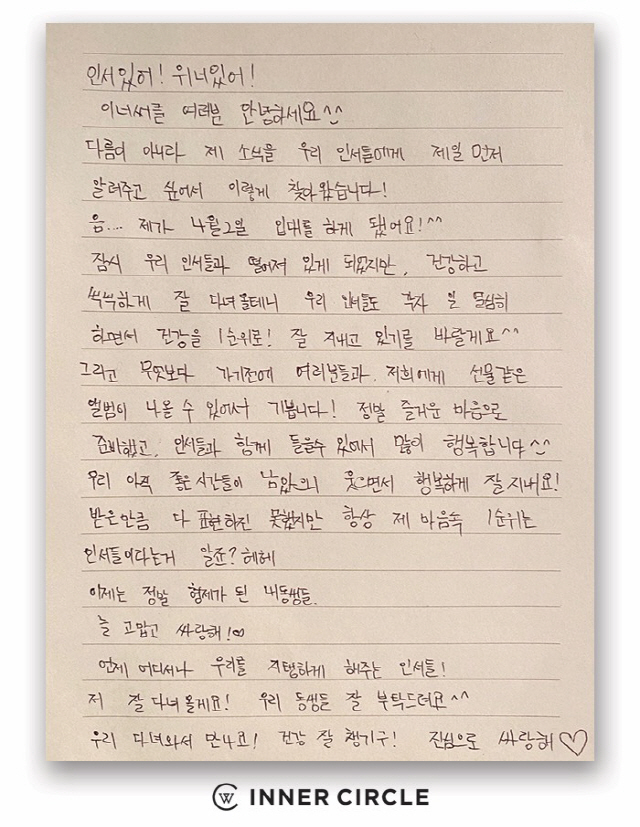 인서있어! 위너있어!
이너써클 여러분 안녕하세요^^
다름이 아니라 제 소식을 우리 인서들에게 제일 먼저
알려주고 싶어서 이렇게 찾아왔습니다!
음.... 제가 4월2일 입대를 하게 됐어요!^^
잠시 우리 인서들과 떨어져 있게 되었지만, 건강하고
씩씩하게 잘 다녀올테니 우리 인서들도 각자 일 열심히
하면서 건강을 1순위로! 잘 지내고 있기를 바랄게요^^
그리고 무엇보다 가기전에 여러분들과. 저희에게 선물같은
앨범이 나올 수 있어서 기쁩니다! 정말 즐거운 마음으로
준비했고, 인서들과 함께 들을수 있어서 많이 행복합니다^^
우리 아직 좋은 시간들이 남았으니 웃으면서 행복하게 잘 지내요!
받은만큼 다 표현하진 못했지만 항상 제 마음속 1순위는
인서들이라는거 알죠? 헤헤
이제는 정말 형제가 된 내동생들.
늘 고맙고 싸랑해!♡
언제 어디서나 우리를 지탱하게 해주는 인서들!
저 잘 다녀올게요! 우리 동생들 잘 부탁드려요^^
우리 다녀와서 만나요! 건강 잘 챙기구! 진심으로 싸랑해♡
INNER CIRCLE